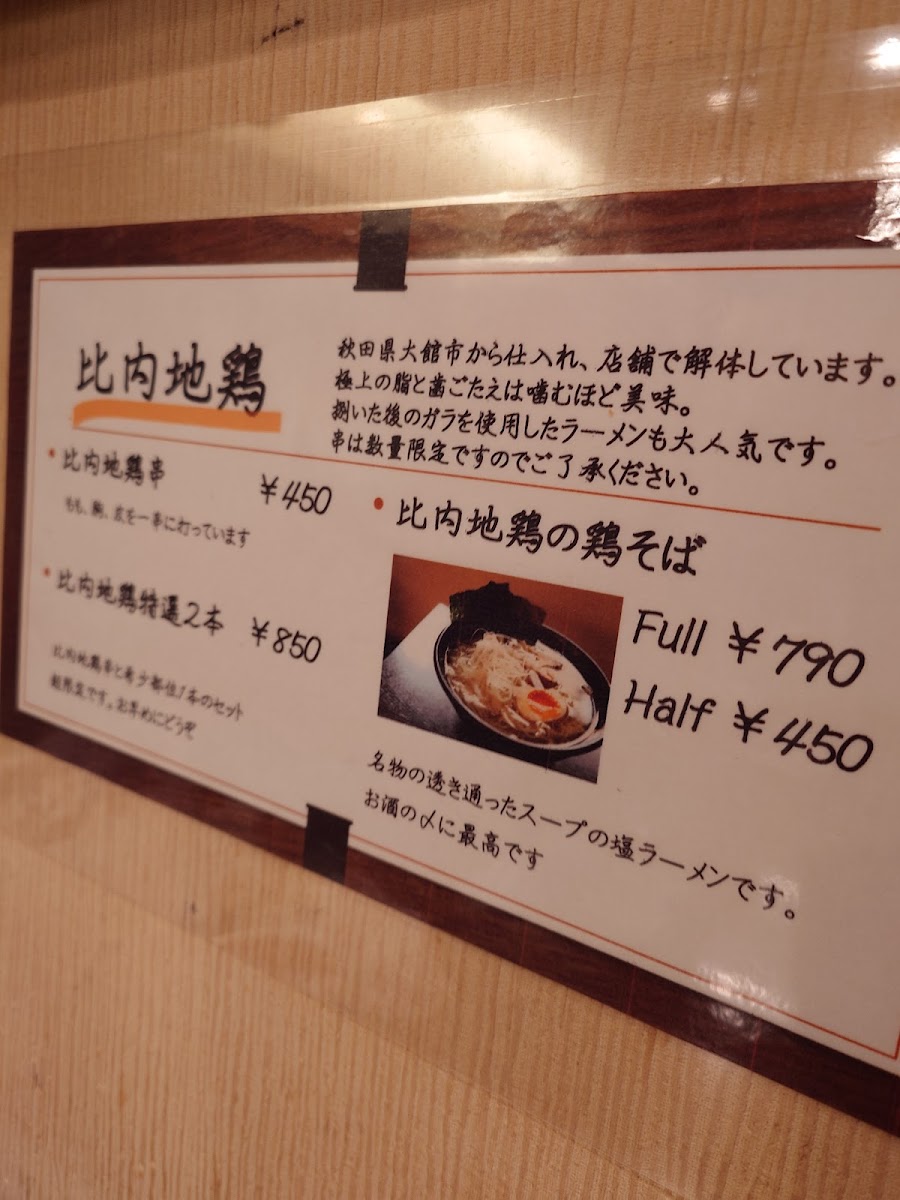 比内地鶏
秋田県大館市から仕入れ、店舗で解体しています。
極上の脂と歯ごたえは噛むほど美味。
捌いた後のガラを使用したラーメンも大人気です。
串は数量限定ですのでご了承ください。
・比内地鶏串 ¥450
もも、胸、皮を一串に打っています
・比内地鶏特選2本 ¥850
比内地鶏串と希少部位1本のセット
数限定です。お早めにどうぞ
・比内地鶏の鶏そば
Full ¥790
Half ¥450
名物の透き通ったスープの塩ラーメンです。
お酒の〆に最高です